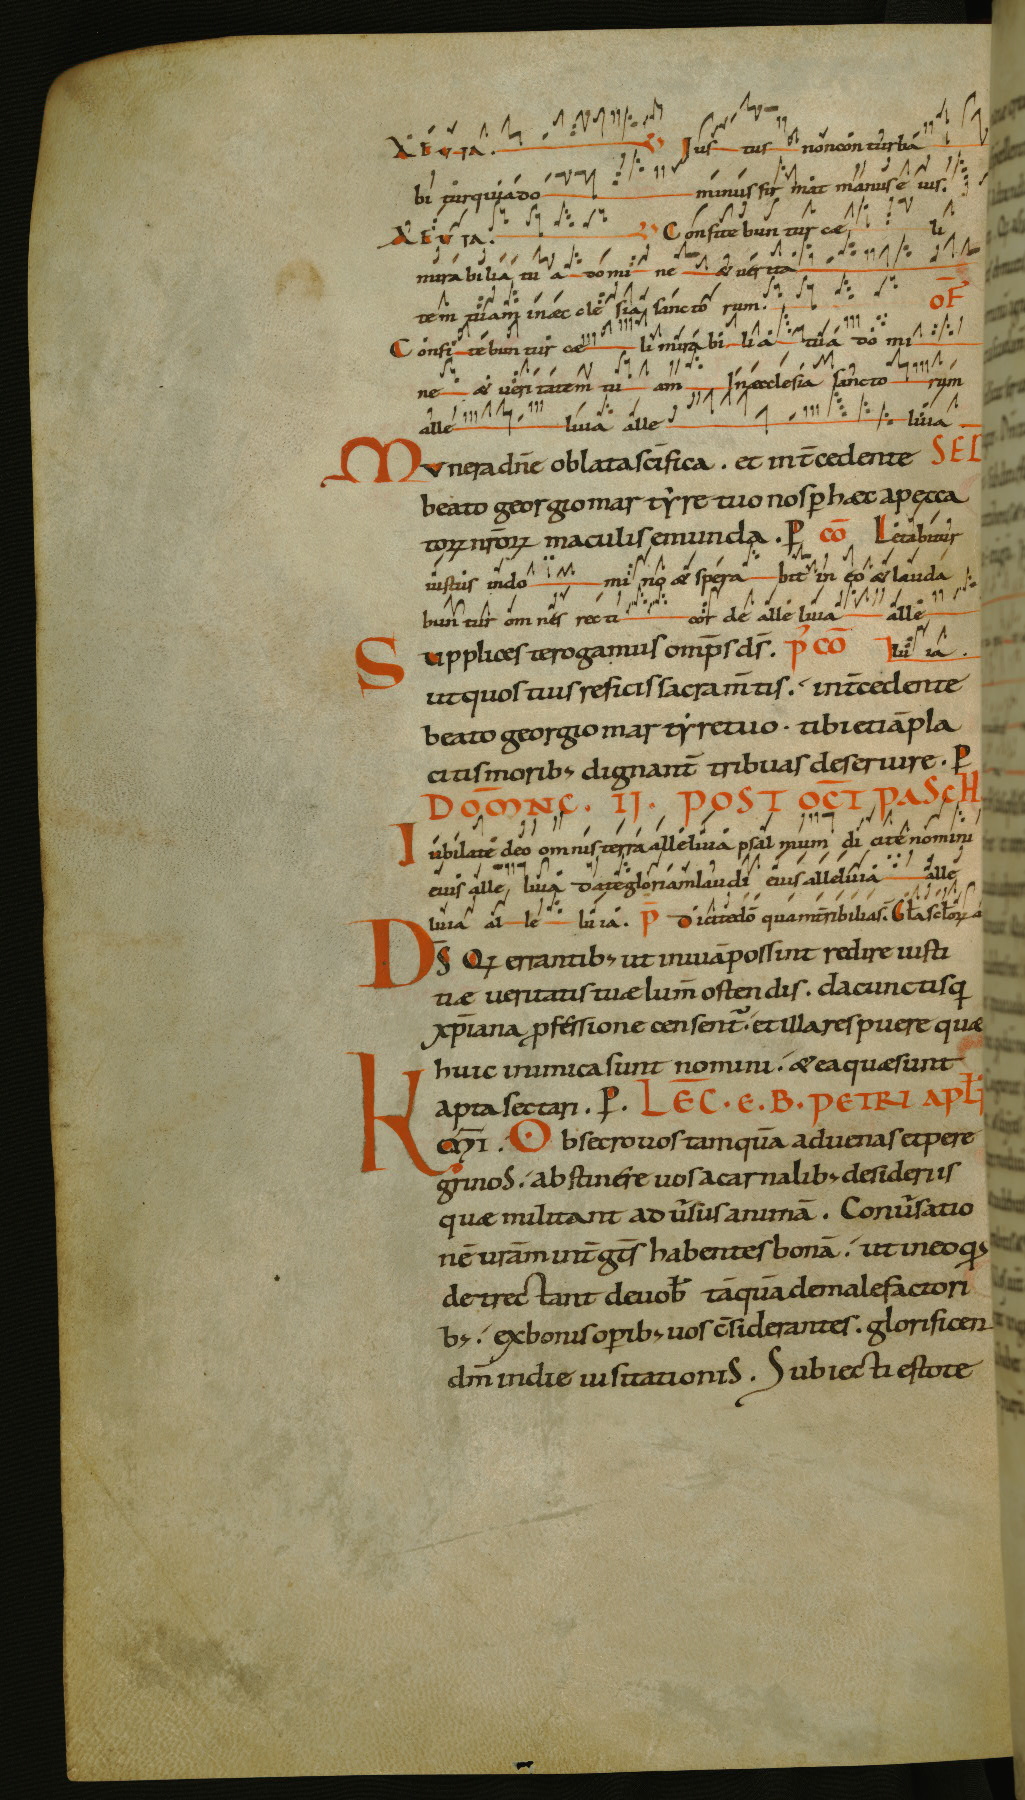 AEVIA. V Iustus non conturba
bitur quia do minus firmat manus e ius.
AEVIA. V Confitebuntur cæ li
mirabilia tu a domi ne & verita
tem tuam in æcclesia sancto rum. OF
Confitebuntur cæ li mirabi lia tua domi
ne & veritatem tu am In æcclesia sancto rum
alle luia alle luia
Munera dn̄e oblata sc̄ifica. et int̄cedente SEC̄
beato georgio martẏre tuo nos p hæc a pecca
torꝝ nr̄orꝝ maculis emunda. P CŌ Letabitur
iustus in do mi no & spera bit in eo & lauda
buntur omnes recti cor de alleluia alle
Supplices te rogamus omp̄s ds̄. P̄ CŌ luia.
ut quos tuis reficis sacram̄tis. int̄cedente
beato georgio martẏre tuo. tibi etiā pla
citis morib; dignant̄ tribuas deservire. P
DOM̄NC. II. POST OCT̄ PASCH
Iubilate deo omnis terra alleluia psalmum dicite nomini
eius alle luia date gloriam laudi eius alleluia alle
luia al le luia. P̄ Dicite dō quam t̄ribilia s̄.
Ds̄ Qꝝ errantib; ut in viā possint redire iusti
tiæ veritatis tuæ lum̄ ostendis. da cunctis q
xp̄iana pfessione censent̄. et illa respuere quæ
huic inimica sunt nomini. & ea quæ sunt
apta sectari. P. LĒC. E. B. PETRI APLI
K̄MI. Obsecro vos tamquā advenas et pere
grinos. abstinere vos a carnalib; desideriis
quæ militant adv̄sus animā. Conv̄satio
nē vrām int̄ gt̄s habentes bonā. ut in eo q;
detrectant de vob̄ tāquā de malefactori
b;. ex bonis opib; vos c̄siderantes. glorificen
dm̄ in die visitationis. Subiecti estote